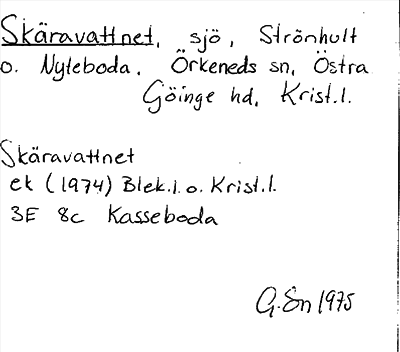 Skäravattnet, sjö, Strönhult
o. Nyteboda. Örkeneds sn, Östra
Göinge hd, Krist.l.
Skäravattnet
ek (1974) Blek.l. o. Krist.l.
3E 8c Kasseboda
G. Sn 1975